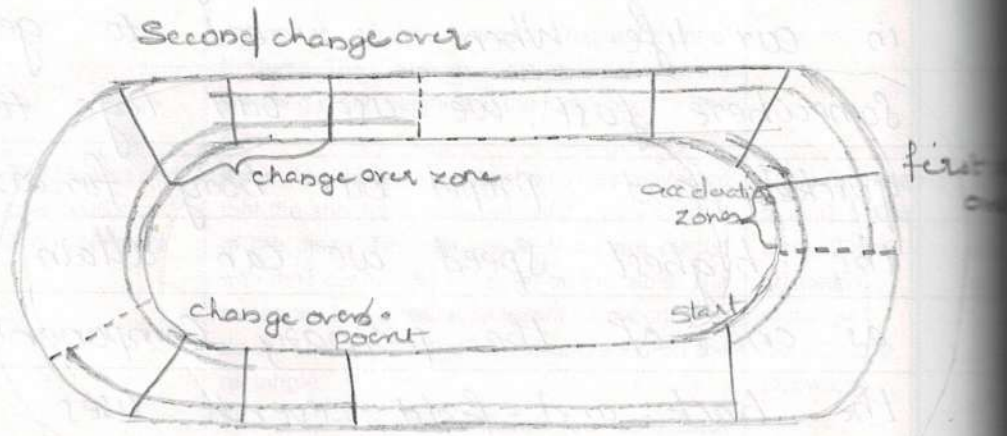 Second change over
change over zone
zones
first
change overs
point
start